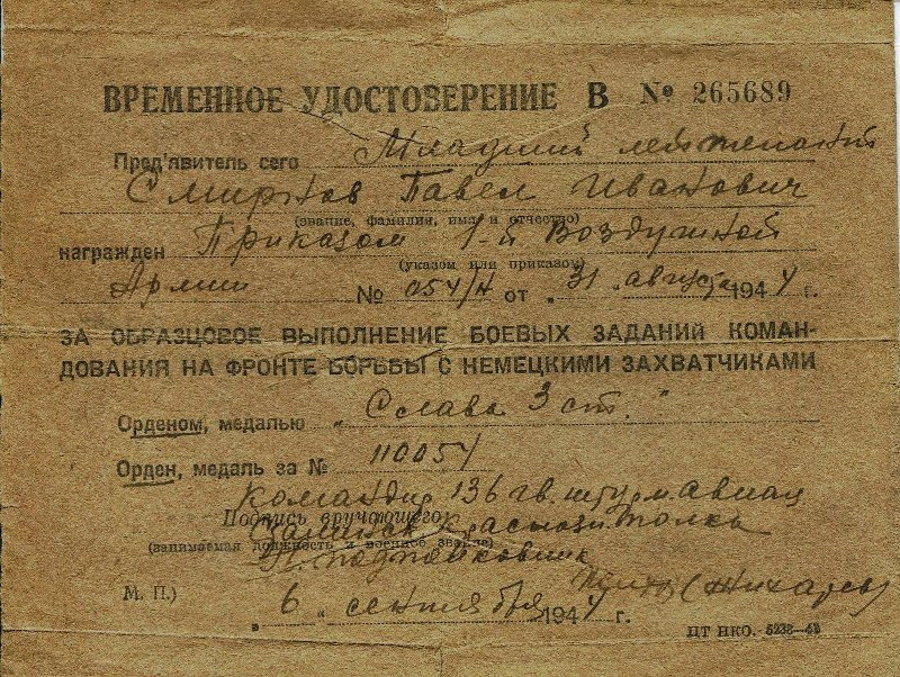 ВРЕМЕННОЕ УДОСТОВЕРЕНИЕ В № 265689
Пред'явитель сего Младший лейтенант
Смирнов Павел Иванович
(звание, фамилия, имя и отчество)
награжден Приказом 1-й Воздушной
(указом или приказом)
Армии № 054/н от „31„ августа 1944 г.
ЗА ОБРАЗЦОВОЕ ВЫПОЛНЕНИЕ БОЕВЫХ ЗАДАНИЙ КОМАН-
ДОВАНИЯ НА ФРОНТЕ БОРЬБЫ С НЕМЕЦКИМИ ЗАХВАТЧИКАМИ
Орденом, медалью „Слава 3 ст."
Орден, медаль за № 110054
Командир 136 гв. штурм. авиац
Подпись вручающего
Краснозн. полка
(занимаемая должность и военное звание)
гв. подполковник
М. П.)
„6" сентября 1944 г.
ЦТ НКО. 5238—43